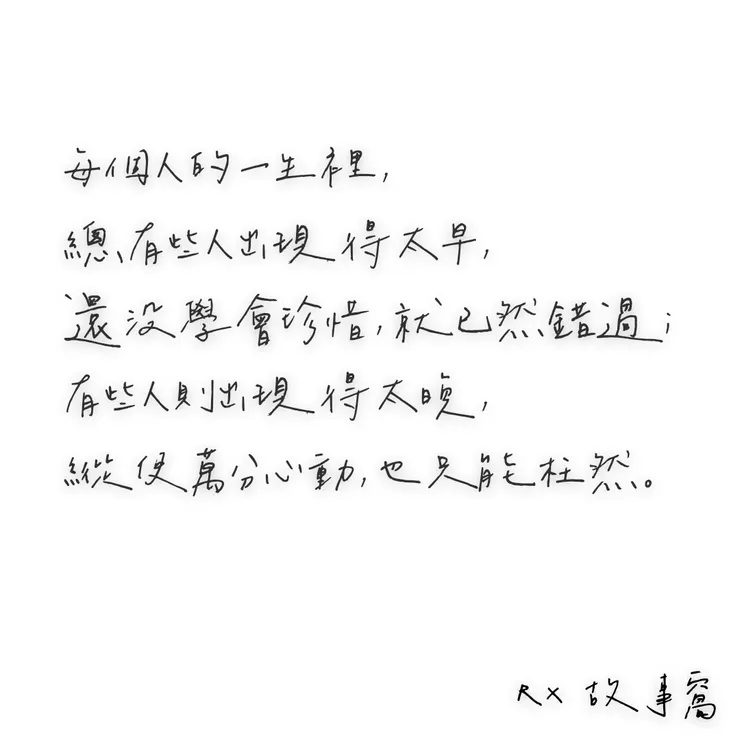 每個人的一生裡,
總有些人出現得太早,
還沒學會珍惜,就已然錯過;
有些人則出現得太晚,
縱使萬分心動,也只能枉然。
RX 故事窩